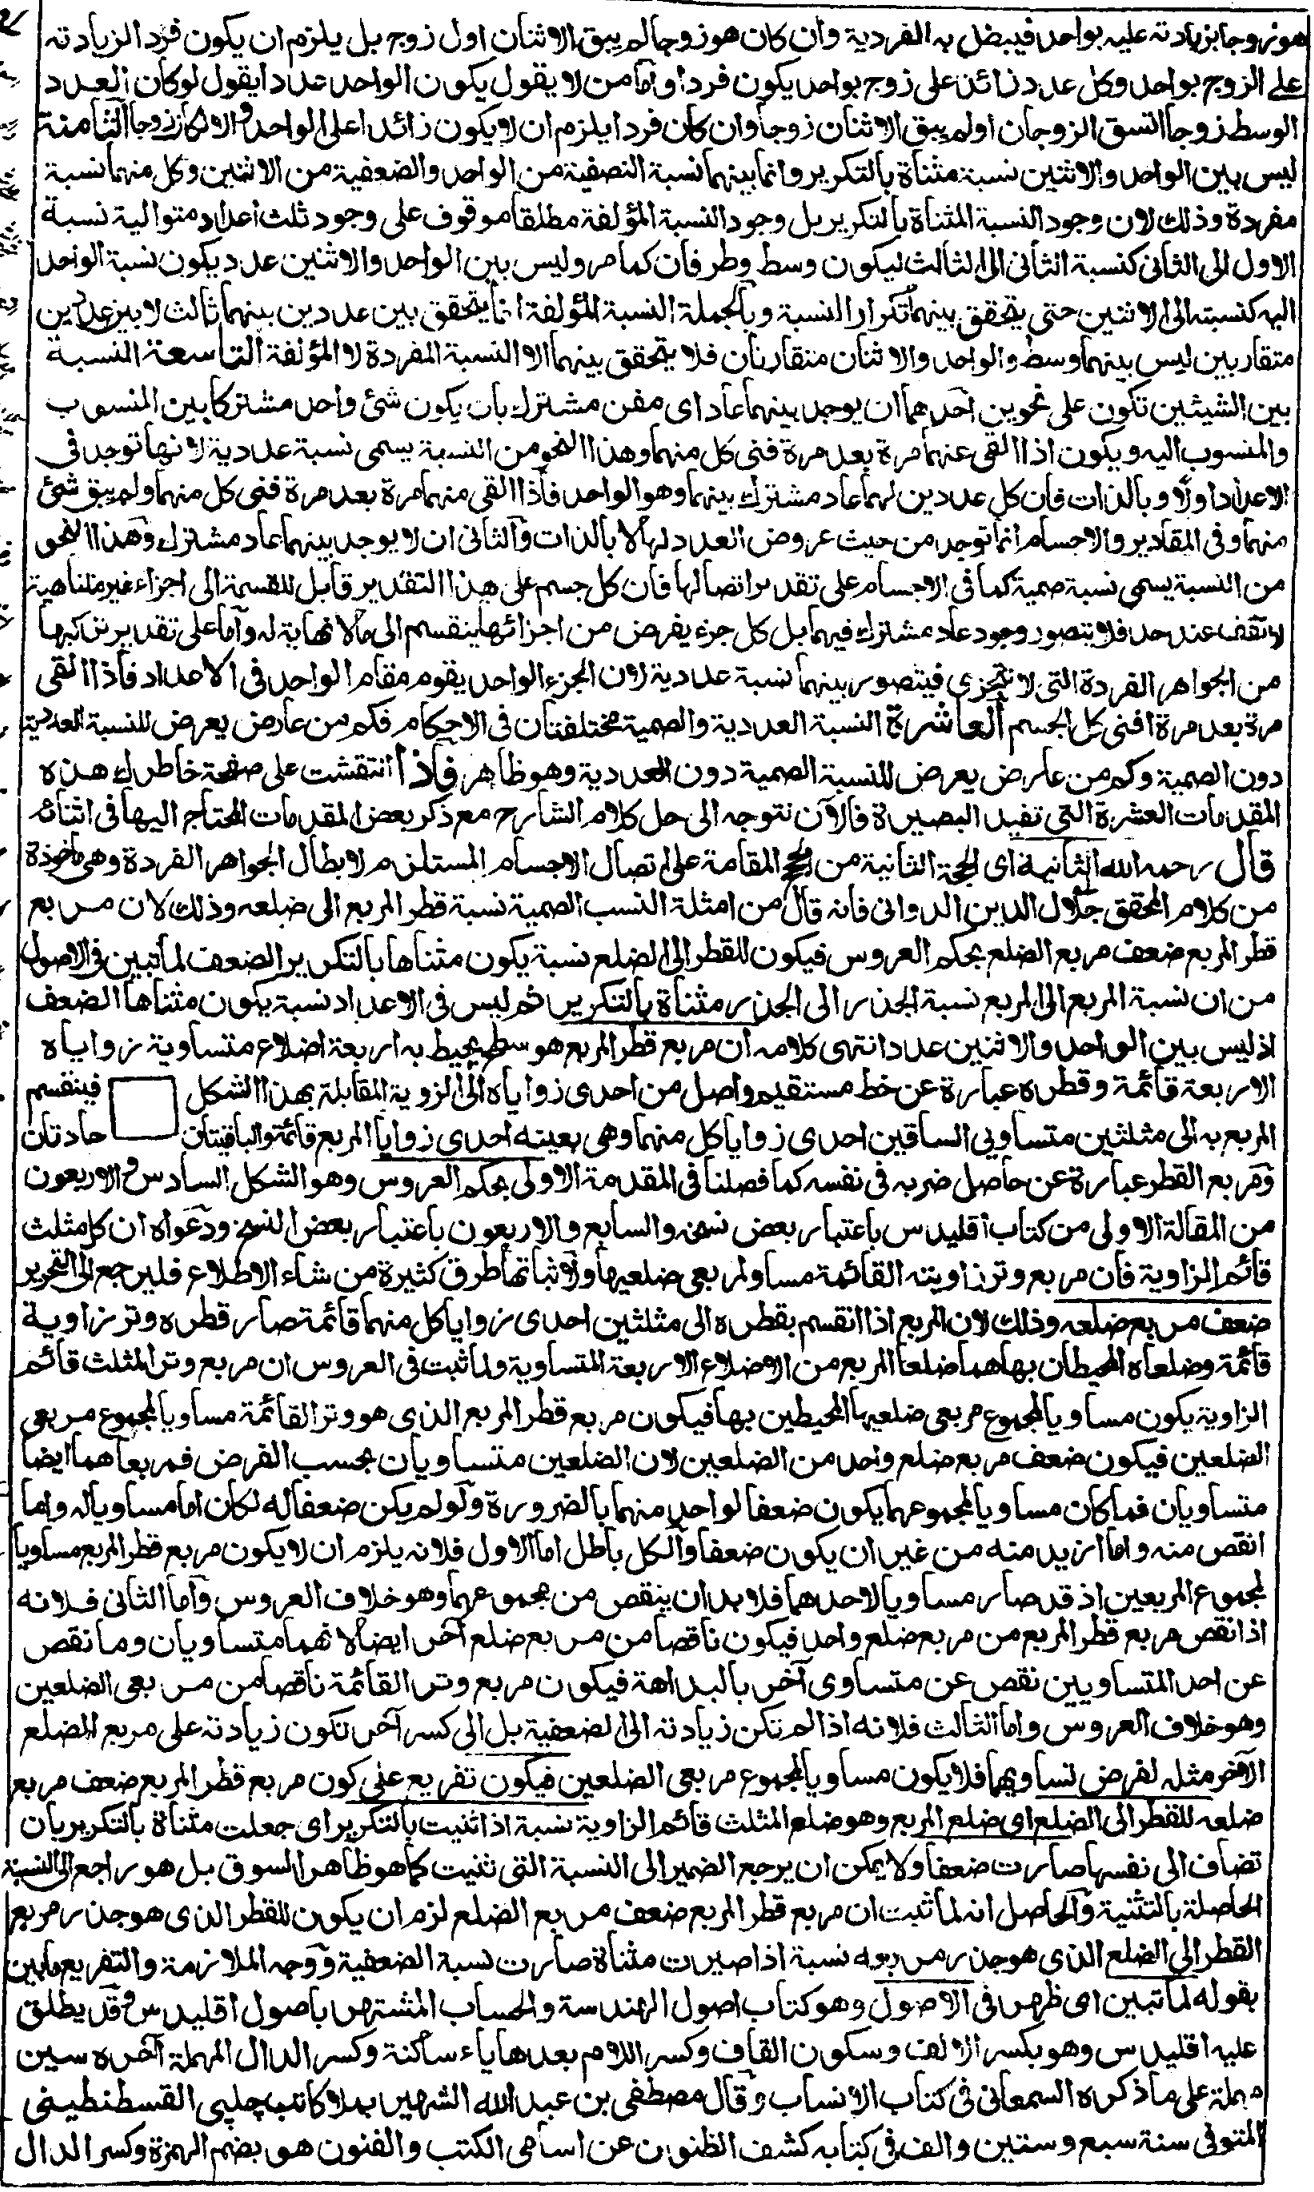 هو زوجا بزيادته عليه بواحد فيبطل به الفردية وان كان هو زوجا لم يبق الاثنان اول زوج بل يلزم ان يكون فردا لزيادته
على الزوج بواحد وكل عدد زائد على زوج بواحد يكون فردا واما من لا يقول يكون الواحد عددا يقول لو كان العدد
الوسط زوجا اتسق الزوجان او لم يبق الاثنان زوجا وان كان فردا يلزم ان لا يكون زائدا على الواحد والا لكان زوجا الثامنة
ليس بين الواحد والاثنين نسبة مثناة بالتكرير وانما بينهما نسبة النصفية من الواحد والضعفية من الاثنين وكل منهما نسبة
مفردة وذلك لان وجود النسبة المثناة بالتكرير بل وجود النسبة المؤلفة مطلقا موقوف على وجود ثلث اعداد متوالية نسبة
الاول الى الثانى كنسبة الثانى الى الثالث ليكون وسط وطرفان كما مر وليس بين الواحد والاثنين عدد يكون نسبة الواحد
اليه كنسبته الى الاثنين حتى يتحقق بينهما تكرار النسبة وبالجملة النسبة المؤلفة انما يتحقق بين عددين بينهما ثالث لا بين عددين
متقاربين ليس بينهما وسط والواحد والاثنان متقاربان فلا يتحقق بينهما الا النسبة المفردة لا المؤلفة التاسعة النسبة
بين الشيئين تكون على نحوين احدهما ان يوجد بينهما عاد اى مفن مشترك بان يكون شئ واحد مشتركا بين المنسوب
والمنسوب اليه ويكون اذا القى عنهما مرة بعد مرة فنى كل منهما وهذا النحو من النسبة يسمى نسبة عددية لانها توجد فى
الاعداد اولا وبالذات فان كل عددين لهما عاد مشترك بينهما وهو الواحد فاذا القى منهما مرة بعد مرة فنى كل منهما ولم يبق شئ
منهما وفى المقادير والاجسام انما توجد من حيث عروض العدد لها لا بالذات والثانى ان لا يوجد بينهما عاد مشترك وهذا النحو
من النسبة يسمى نسبة صمية كما فى الاجسام على تقدير اتصالها فان كل جسم على هذا التقدير قابل للقسمة الى اجزاء غير متناهية
لا تقف عند حد فلا يتصور وجود عاد مشترك فيهما بل كل جزء يفرض من اجزائها ينقسم الى ما لا نهاية له واما على تقدير تركبها
من الجواهر الفردة التى لا تتجزى فيتصور بينهما نسبة عددية لان الجزء الواحد يقوم مقام الواحد فى الاعداد فاذا القى
مرة بعد مرة افنى كل الجسم العاشرة النسبة العددية والصمية مختلفتان فى الاحكام فكم من عارض يعرض للنسبة العددية
دون الصمية وكم من عارض يعرض للنسبة الصمية دون العددية وهو ظاهر فاذا انتقشت على صفحة خاطرك هذه
المقدمات العشرة التى تفيد البصيرة فالآن نتوجه الى حل كلام الشارح مع ذكر بعض المقدمات المحتاج اليها فى اثنائه
قال رحمه الله الثانية اى الحجة الثانية من الحجج المقامة على اتصال الاجسام المستلزم لابطال الجواهر الفردة وهى ماخوذة
من كلام المحقق جلال الدين الدوانى فانه قال من امثلة النسب الصمية نسبة قطر المربع الى ضلعه وذلك لان مربع
قطر المربع ضعف مربع الضلع بحكم العروس فيكون للقطر الى الضلع نسبة يكون مثناها بالتكرير الضعف لما تبين فى الاصول
من ان نسبة المربع الى المربع نسبة الجذر الى الجذر مثناة بالتكرير ثم ليس فى الاعداد نسبة يكون مثناها الضعف
اذ ليس بين الواحد والاثنين عدد انتهى كلامه ان مربع قطر المربع هو سطح يحيط به اربعة اضلاع متساوية زواياه
الاربعة قائمة وقطره عبارة عن خط مستقيم واصل من احدى زواياه الى الزوية المقابلة بهذا الشكل فينقسم
المربع به الى مثلثين متساويى الساقين احدى زوايا كل منهما وهى بعينه احدى زوايا المربع قائمة والباقيتان حادتان
ومربع القطر عبارة عن حاصل ضربه فى نفسه كما فصلنا فى المقدمة الاولى بحكم العروس وهو الشكل السادس والاربعون
من المقالة الاولى من كتاب اقليدس باعتبار بعض نسخه والسابع والاربعون باعتبار بعض النسخ ودعواه ان كل مثلث
قائم الزاوية فان مربع وتر زاويته القائمة مساو لمربعى ضلعيها ولاثباتها طرق كثيرة من شاء الاطلاع فليرجع الى التحرير
ضعف مربع ضلعه وذلك لان المربع اذا انقسم بقطره الى مثلثين احدى زوايا كل منهما قائمة صار قطره وتر زاوية
قائمة وضلعاه المحيطان بها هما ضلعا المربع من الاضلاع الاربعة المتساوية ولما ثبت فى العروس ان مربع وتر المثلث قائم
الزاوية يكون مساويا لمجموع مربعى ضلعيها المحيطين بها فيكون مربع قطر المربع الذى هو وتر القائمة مساويا لمجموع مربعى
الضلعين فيكون ضعف مربع ضلع واحد من الضلعين لان الضلعين متساويان بحسب الفرض فمربعاهما ايضا
متساويان فما كان مساويا لمجموعهما يكون ضعفا لواحد منهما بالضرورة ولو لم يكن ضعفا له لكان اما مساويا له واما
انقص منه واما ازيد منه من غير ان يكون ضعفا والكل باطل اما الاول فلانه يلزم ان لا يكون مربع قطر المربع مساويا
لمجموع المربعين اذ قد صار مساويا لاحدهما فلا بد ان ينقص من مجموعهما وهو خلاف العروس واما الثانى فلانه
اذا نقص مربع قطر المربع من مربع ضلع واحد فيكون ناقصا من مربع ضلع آخر ايضا لانهما متساويان وما نقص
عن احد المتساويين نقص عن متساوى آخر بالبداهة فيكون مربع وتر القائمة ناقصا من مربعى الضلعين
وهو خلاف العروس واما الثالث فلانه اذا لم تكن زيادته الى الضعفية بل الى كسر آخر لكون زيادته على مربع الضلع
الآخر مثله لفرض تساويهما فلا يكون مساويا لمجموع مربعى الضلعين فيكون تفريع على كون مربع قطر المربع ضعف مربع
ضلعه للقطر الى الضلع اى ضلع المربع وهو ضلع المثلث قائم الزاوية نسبة اذا ثنيت بالتكرير اى جعلت مثناة بالتكرير بان
تضاف الى نفسها صارت ضعفا ولا يمكن ان يرجع الضمير الى النسبة التى ثنيت كما هو ظاهر السوق بل هو راجع الى النسبة
الحاصلة بالتثنية والحاصل انه لما ثبت ان مربع قطر المربع ضعف مربع الضلع لزم ان يكون للقطر الذى هو جذر مربع
القطر الى الضلع الذى هو جذر مربعه نسبة اذا صيرت مثناة صارت نسبة الضعفية ووجه الملازمة والتفريع ما بين
بقوله لما تبين اى ظهر فى الاصول وهو كتاب اصول الهندسة والحساب المشتهر باصول اقليدس وقد يطلق
عليه اقليدس وهو بكسر الالف وسكون القاف وكسر اللام بعدها ياء ساكنة وكسر الدال المهملة آخره سين
مهملة على ما ذكره السمعانى فى كتاب الانساب وقال مصطفى بن عبد الله الشهير بملا كاتب چلپى القسطنطينى
المتوفى سنة سبع وستين والف فى كتابه كشف الظنون عن اسامى الكتب والفنون هو بضم الهمزة وكسر الدال